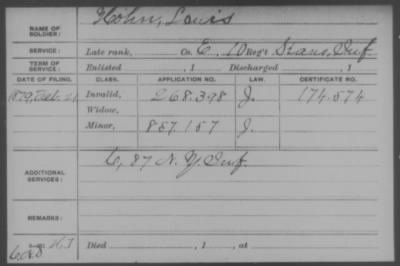 NAME OF SOLDIER: Hohn, Louis
SERVICE: Late rank, Co. E, 10 Reg't Inf.
TERM OF SERVICE: Enlisted , 1 Discharged , 1
DATE OF FILING. CLASS. APPLICATION NO. LAW. CERTIFICATE NO.
Invalid, 268.398 J. 174.574
Widow,
Minor, 857.157 J.
ADDITIONAL SERVICES: C, 87 N.Y. Inf.
REMARKS:
Died , 1 , at